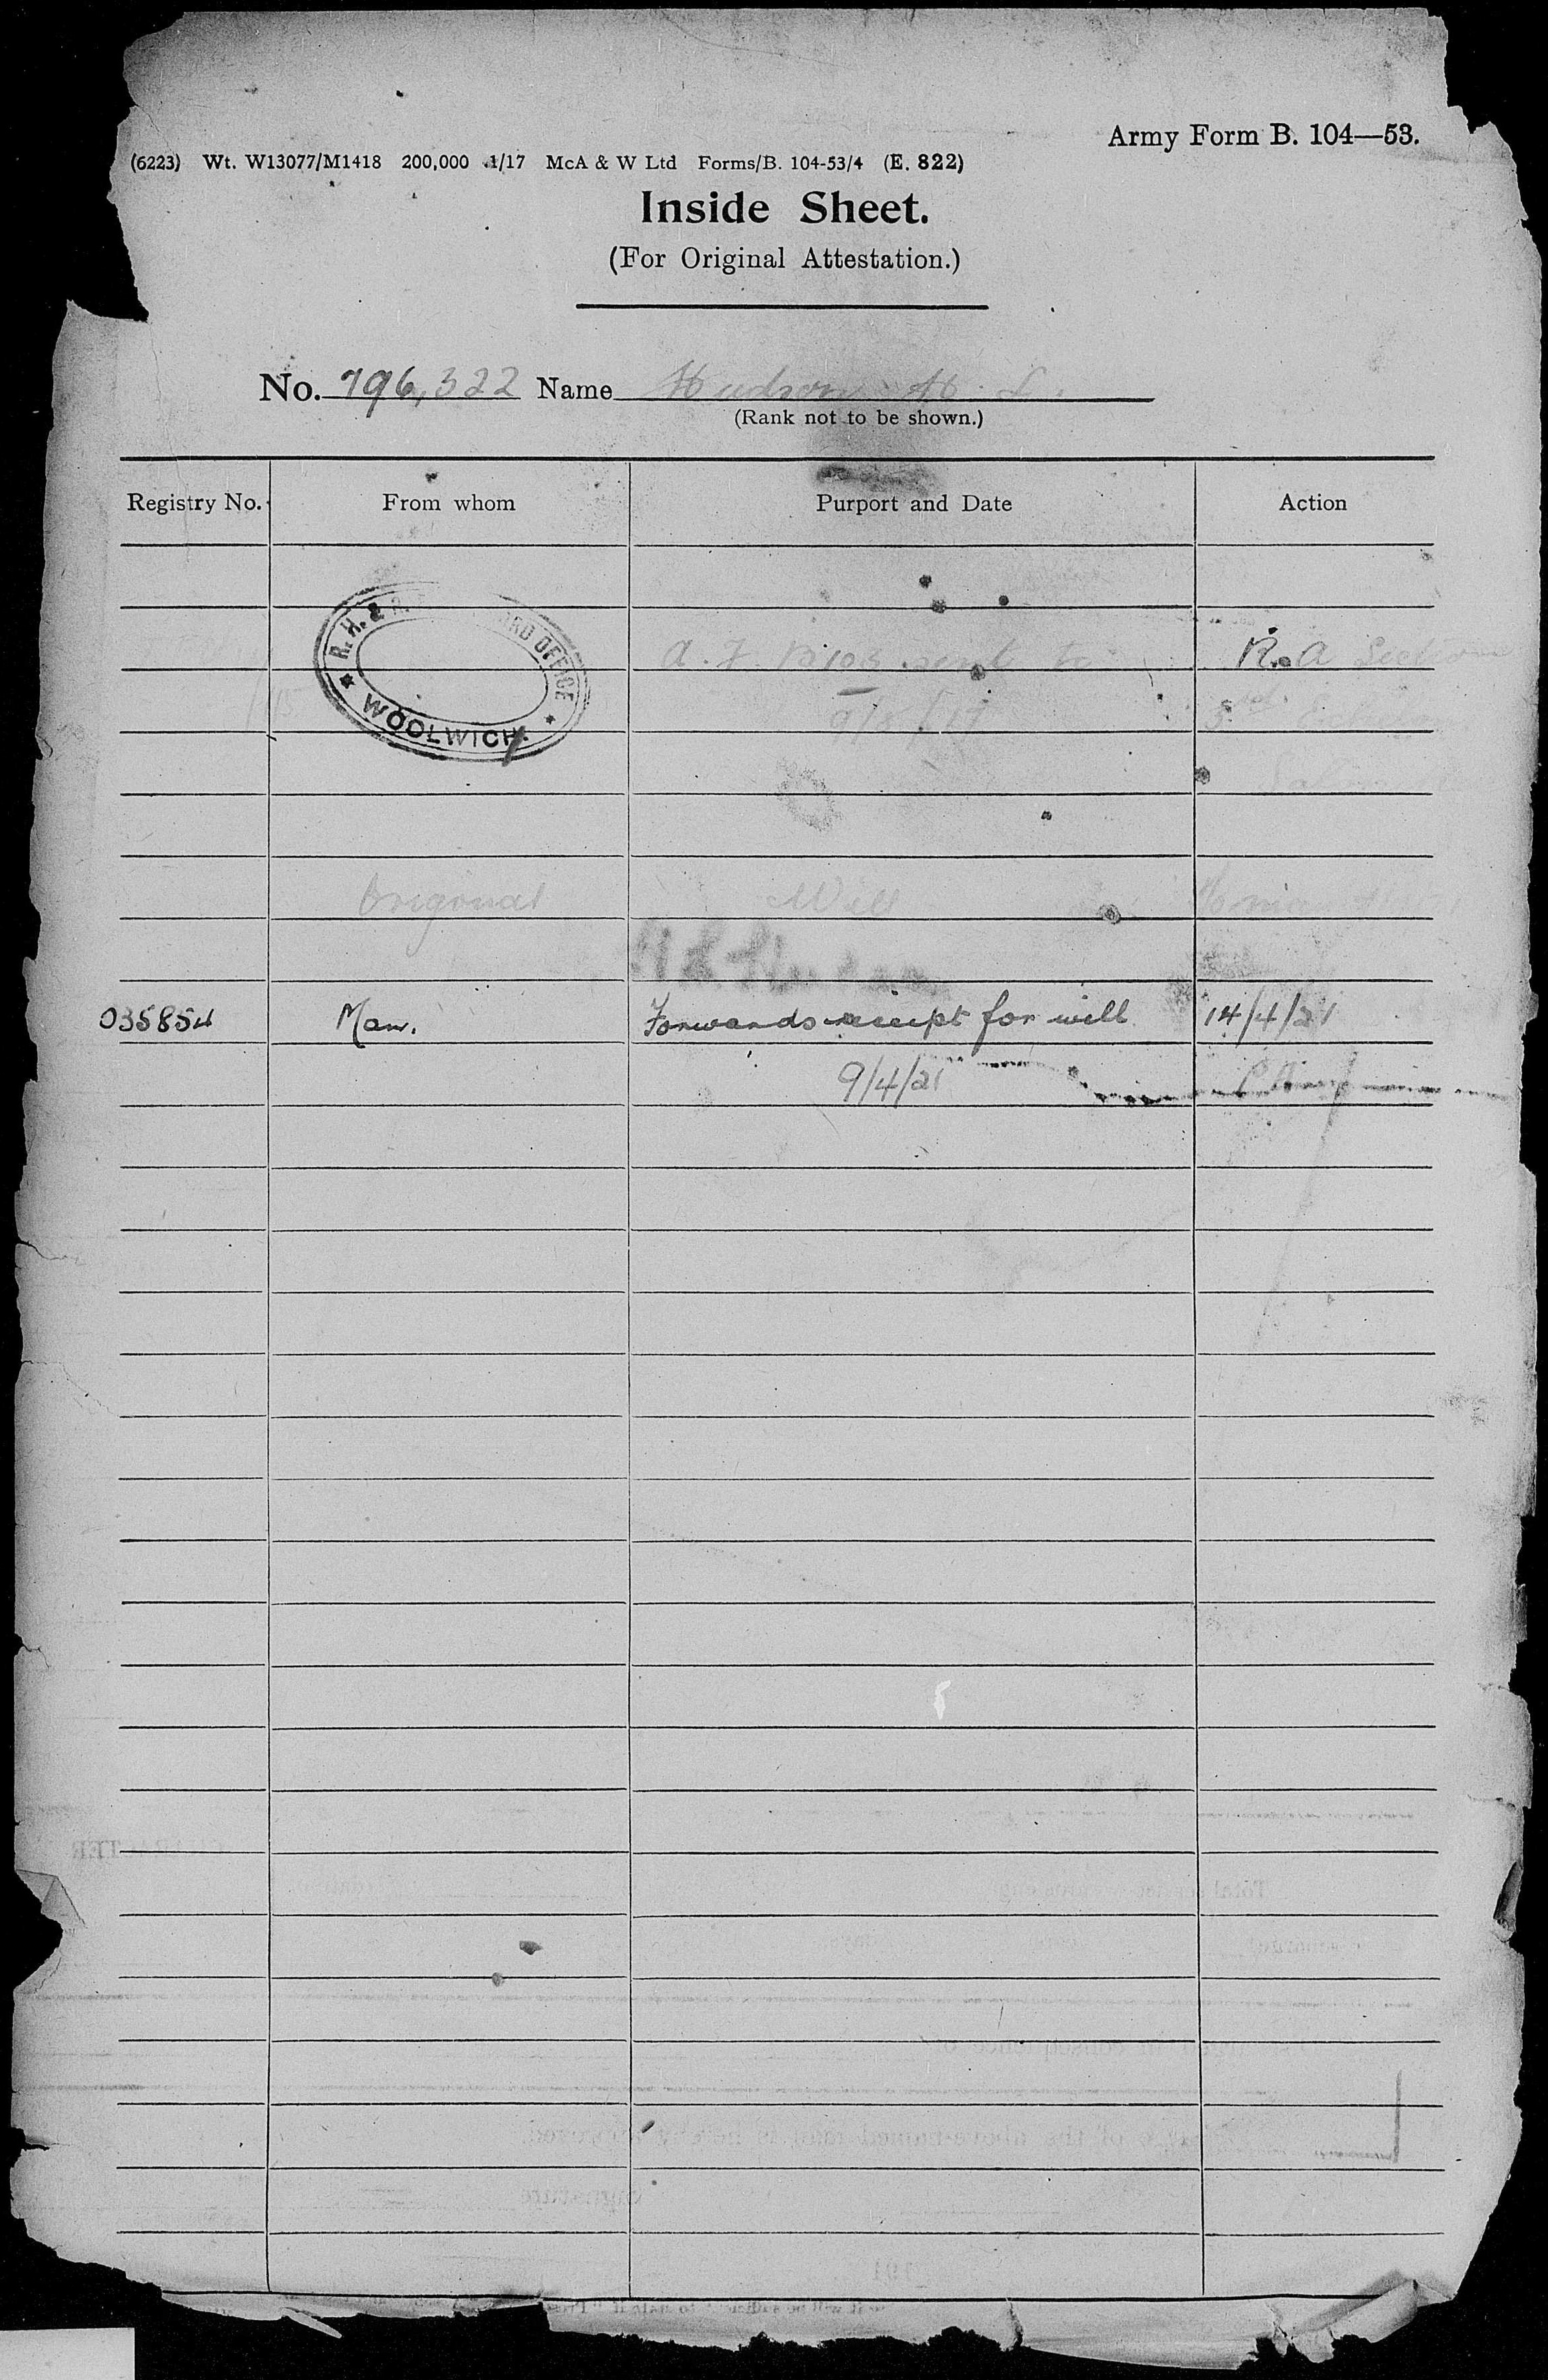 Army Form B. 104—53.
(6223) Wt. W13077/M1418 200,000 1/17 McA & W Ltd Forms/B. 104-53/4 (E. 822)
Inside Sheet.
(For Original Attestation.)
No. 796,322 Name Hudson H. L.
(Rank not to be shown.)
Registry No. From whom Purport and Date Action
R. H. & R. OFFICE
WOOLWICH.
A. F. B103 sent to R.A Section
9/5/17 3rd Echelon
Origonal Will
035854 Man. Forwards receipt for will 14/4/21
9/4/21